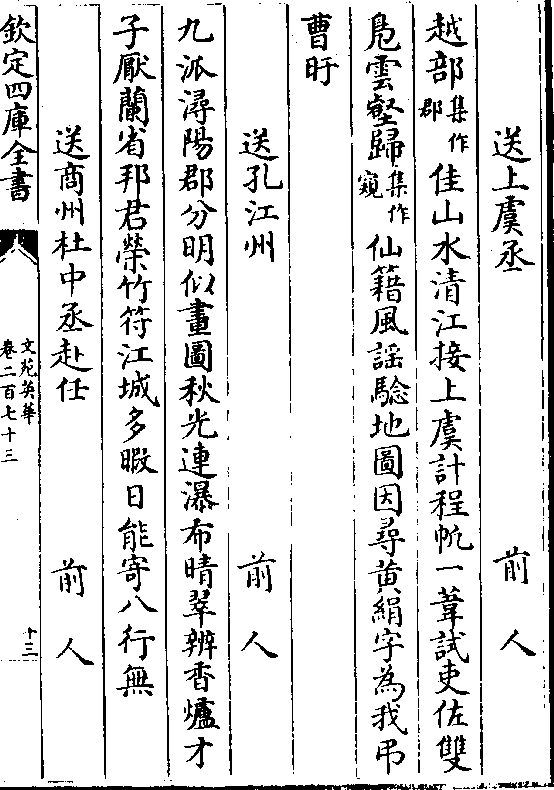 送上虞丞　前人
越部集作郡佳山水清江接上虞計程帆一葦試吏佐雙
鳬雲壑歸集作窺仙籍風謡驗地圖因尋黄絹字為我弔
曹旴
送孔江州　前人
九派潯陽郡分明似畫圖秋光連瀑布晴翠辨香爐才
子厭蘭省邦君榮竹符江城多暇日能寄八行無
送商州杜中丞赴任　前人
欽定四庫全書
文苑英華
卷二百七十三
十三